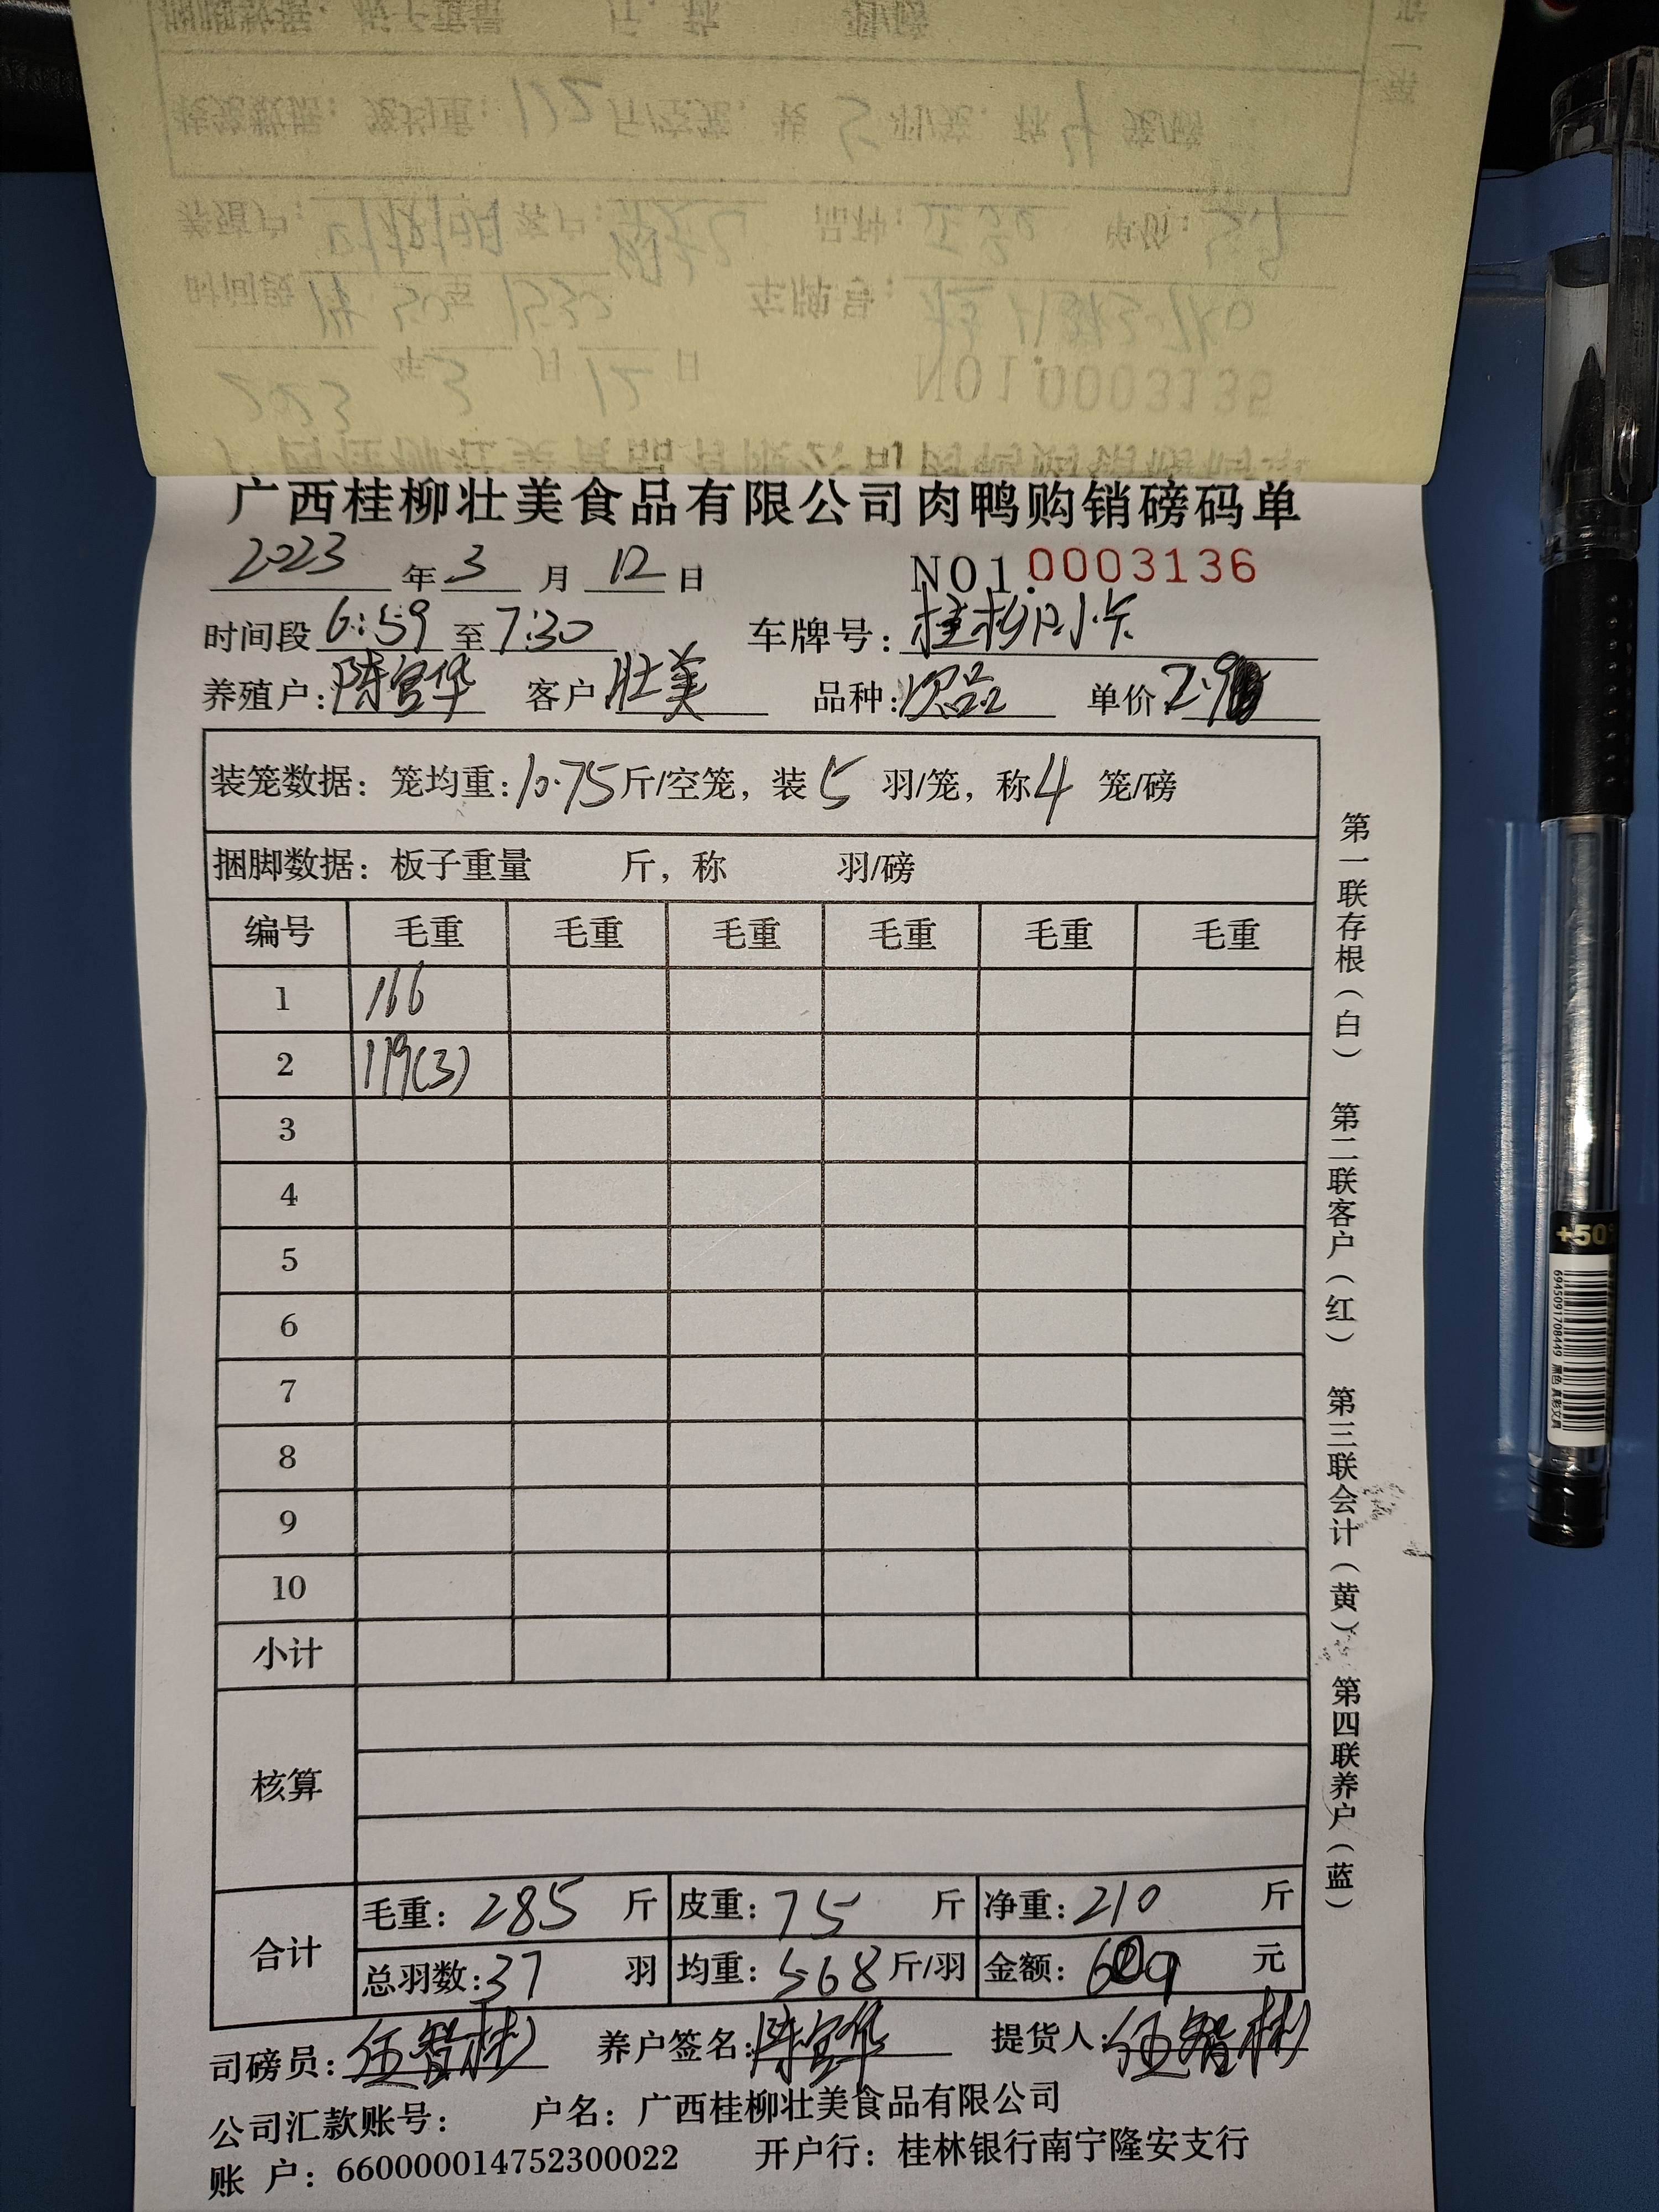 广西桂柳壮美食品有限公司肉鸭购销磅码单
2023 年 3 月 12 日 NO1.0003136
时间段 6:59 至 7:30 车牌号:
养殖户: 客户 壮美 品种: 次品 单价: 2.9
装笼数据: 笼均重: 10.75 斤/空笼, 装 5 羽/笼, 称 4 笼/磅
捆脚数据: 板子重量 斤, 称 羽/磅
编号 毛重 毛重 毛重 毛重 毛重 毛重
1 166
2 119(3)
3
4
5
6
7
8
9
10
小计
核算
合计 毛重: 285 斤 皮重: 75 斤 净重: 210 斤
总羽数: 37 羽 均重: 5.68 斤/羽 金额: 609 元
司磅员: 伍智彬 养户签名: 提货人: 伍智彬
公司汇款账号: 户名: 广西桂柳壮美食品有限公司
账 户: 660000014752300022 开户行: 桂林银行南宁隆安支行
第一联存根(白) 第二联客户(红) 第三联会计(黄) 第四联养户(蓝)
+50
6945091708449 黑色